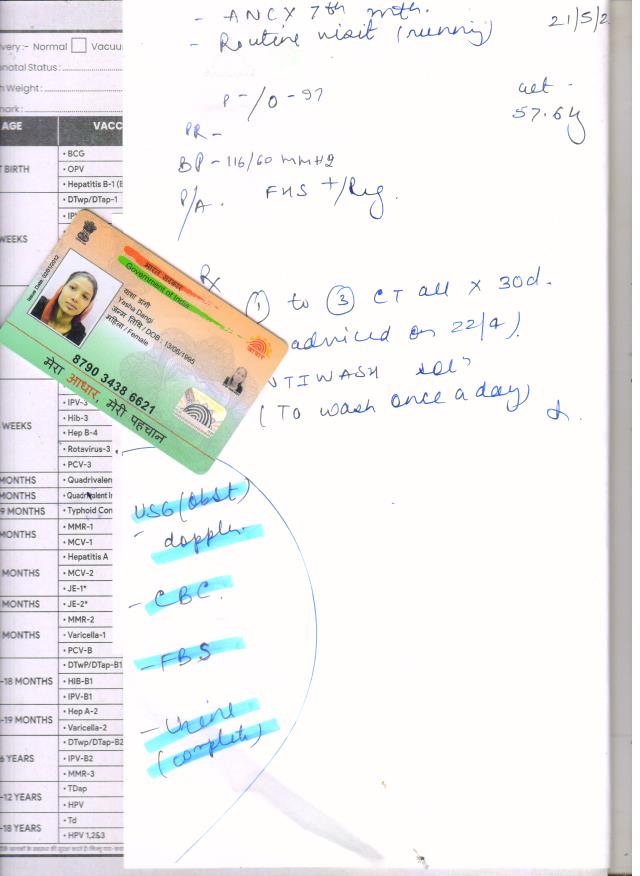 - ANC X 7th mth.
21/5/2
- Routine visit (running)
P-/O-97
wt -
57.6 kg
PR-
BP-116/60 mmHg
P/A. FHS +/Reg.
Rx
① to ③ CT all X 30d.
advised on 22/4).
NTIWASH sol
(To wash once a day)
USG (Obst)
- doppler.
- CBC.
- FBS
- Urine
(complete)
भारत सरकार
Government of India
Issue Date: 02/10/2012
Yasha Dangi
जन्म तिथि / DOB : 13/06/1995
महिला / Female
8790 3438 6621
मेरा आधार, मेरी पहचान
आधार
very:- Normal
Vacuu
natal Status:
h Weight:
mark:
AGE
VACC
BIRTH
• BCG
• OPV
• Hepatitis B-1 (B
WEEKS
• DTwp/DTap-1
• IP
WEEKS
• IPV-3
• Hib-3
• Hep B-4
• Rotavirus-3
• PCV-3
MONTHS
• Quadrivalen
MONTHS
• Quadrivalent I
9 MONTHS
• Typhoid Con
MONTHS
• MMR-1
• MCV-1
MONTHS
• Hepatitis A
• MCV-2
• JE-1*
MONTHS
• JE-2*
MONTHS
• MMR-2
• Varicella-1
• PCV-B
-18 MONTHS
• DTwP/DTap-B1
• HIB-B1
• IPV-B1
-19 MONTHS
• Hep A-2
• Varicella-2
6 YEARS
• DTwp/DTap-B2
• IPV-B2
• MMR-3
-12 YEARS
• TDap
• HPV
-18 YEARS
• Td
• HPV 1,2&3